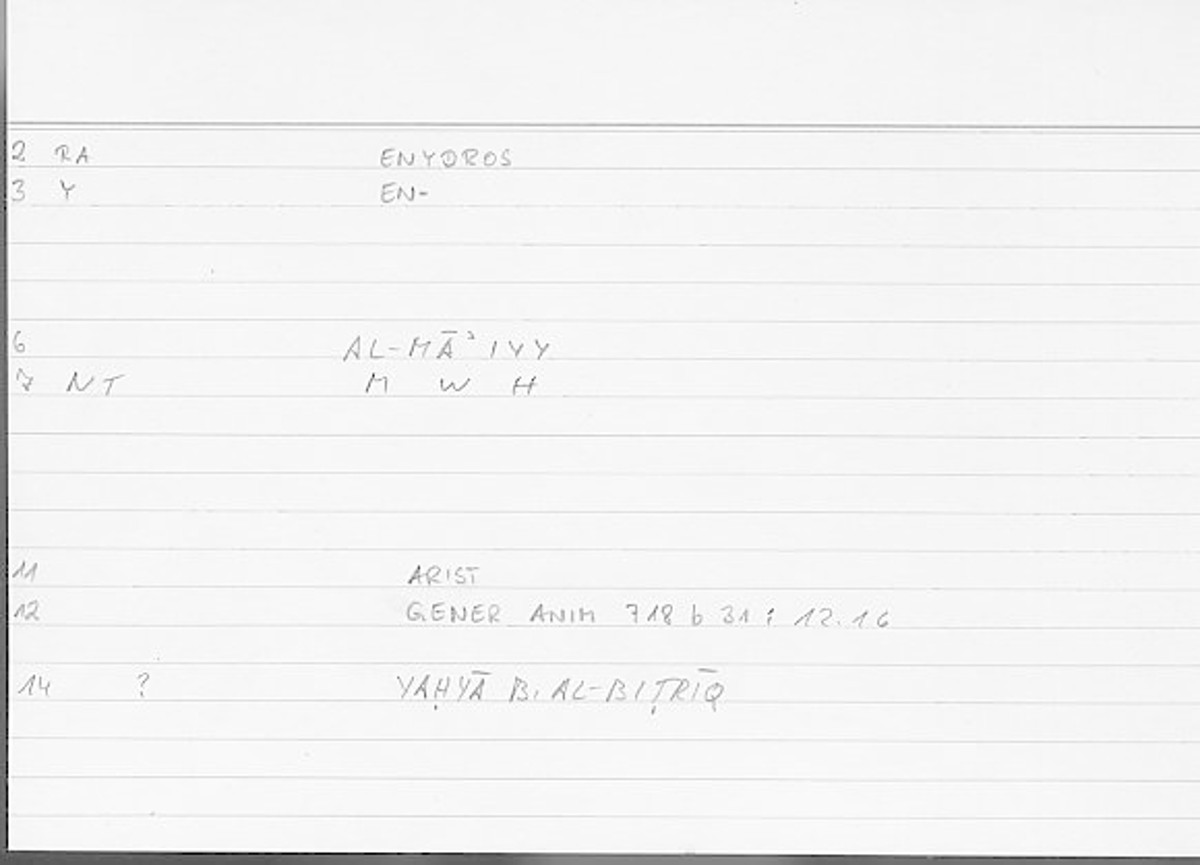 2 RA ENYDROS
3 Y EN-
6 AL-MĀʾIYY
7 NT M W H
11 ARIST
12 GENER ANIM 718 b 31 ; 12.16
14 ? YAḤYĀ B. AL-BIṬRĪQ